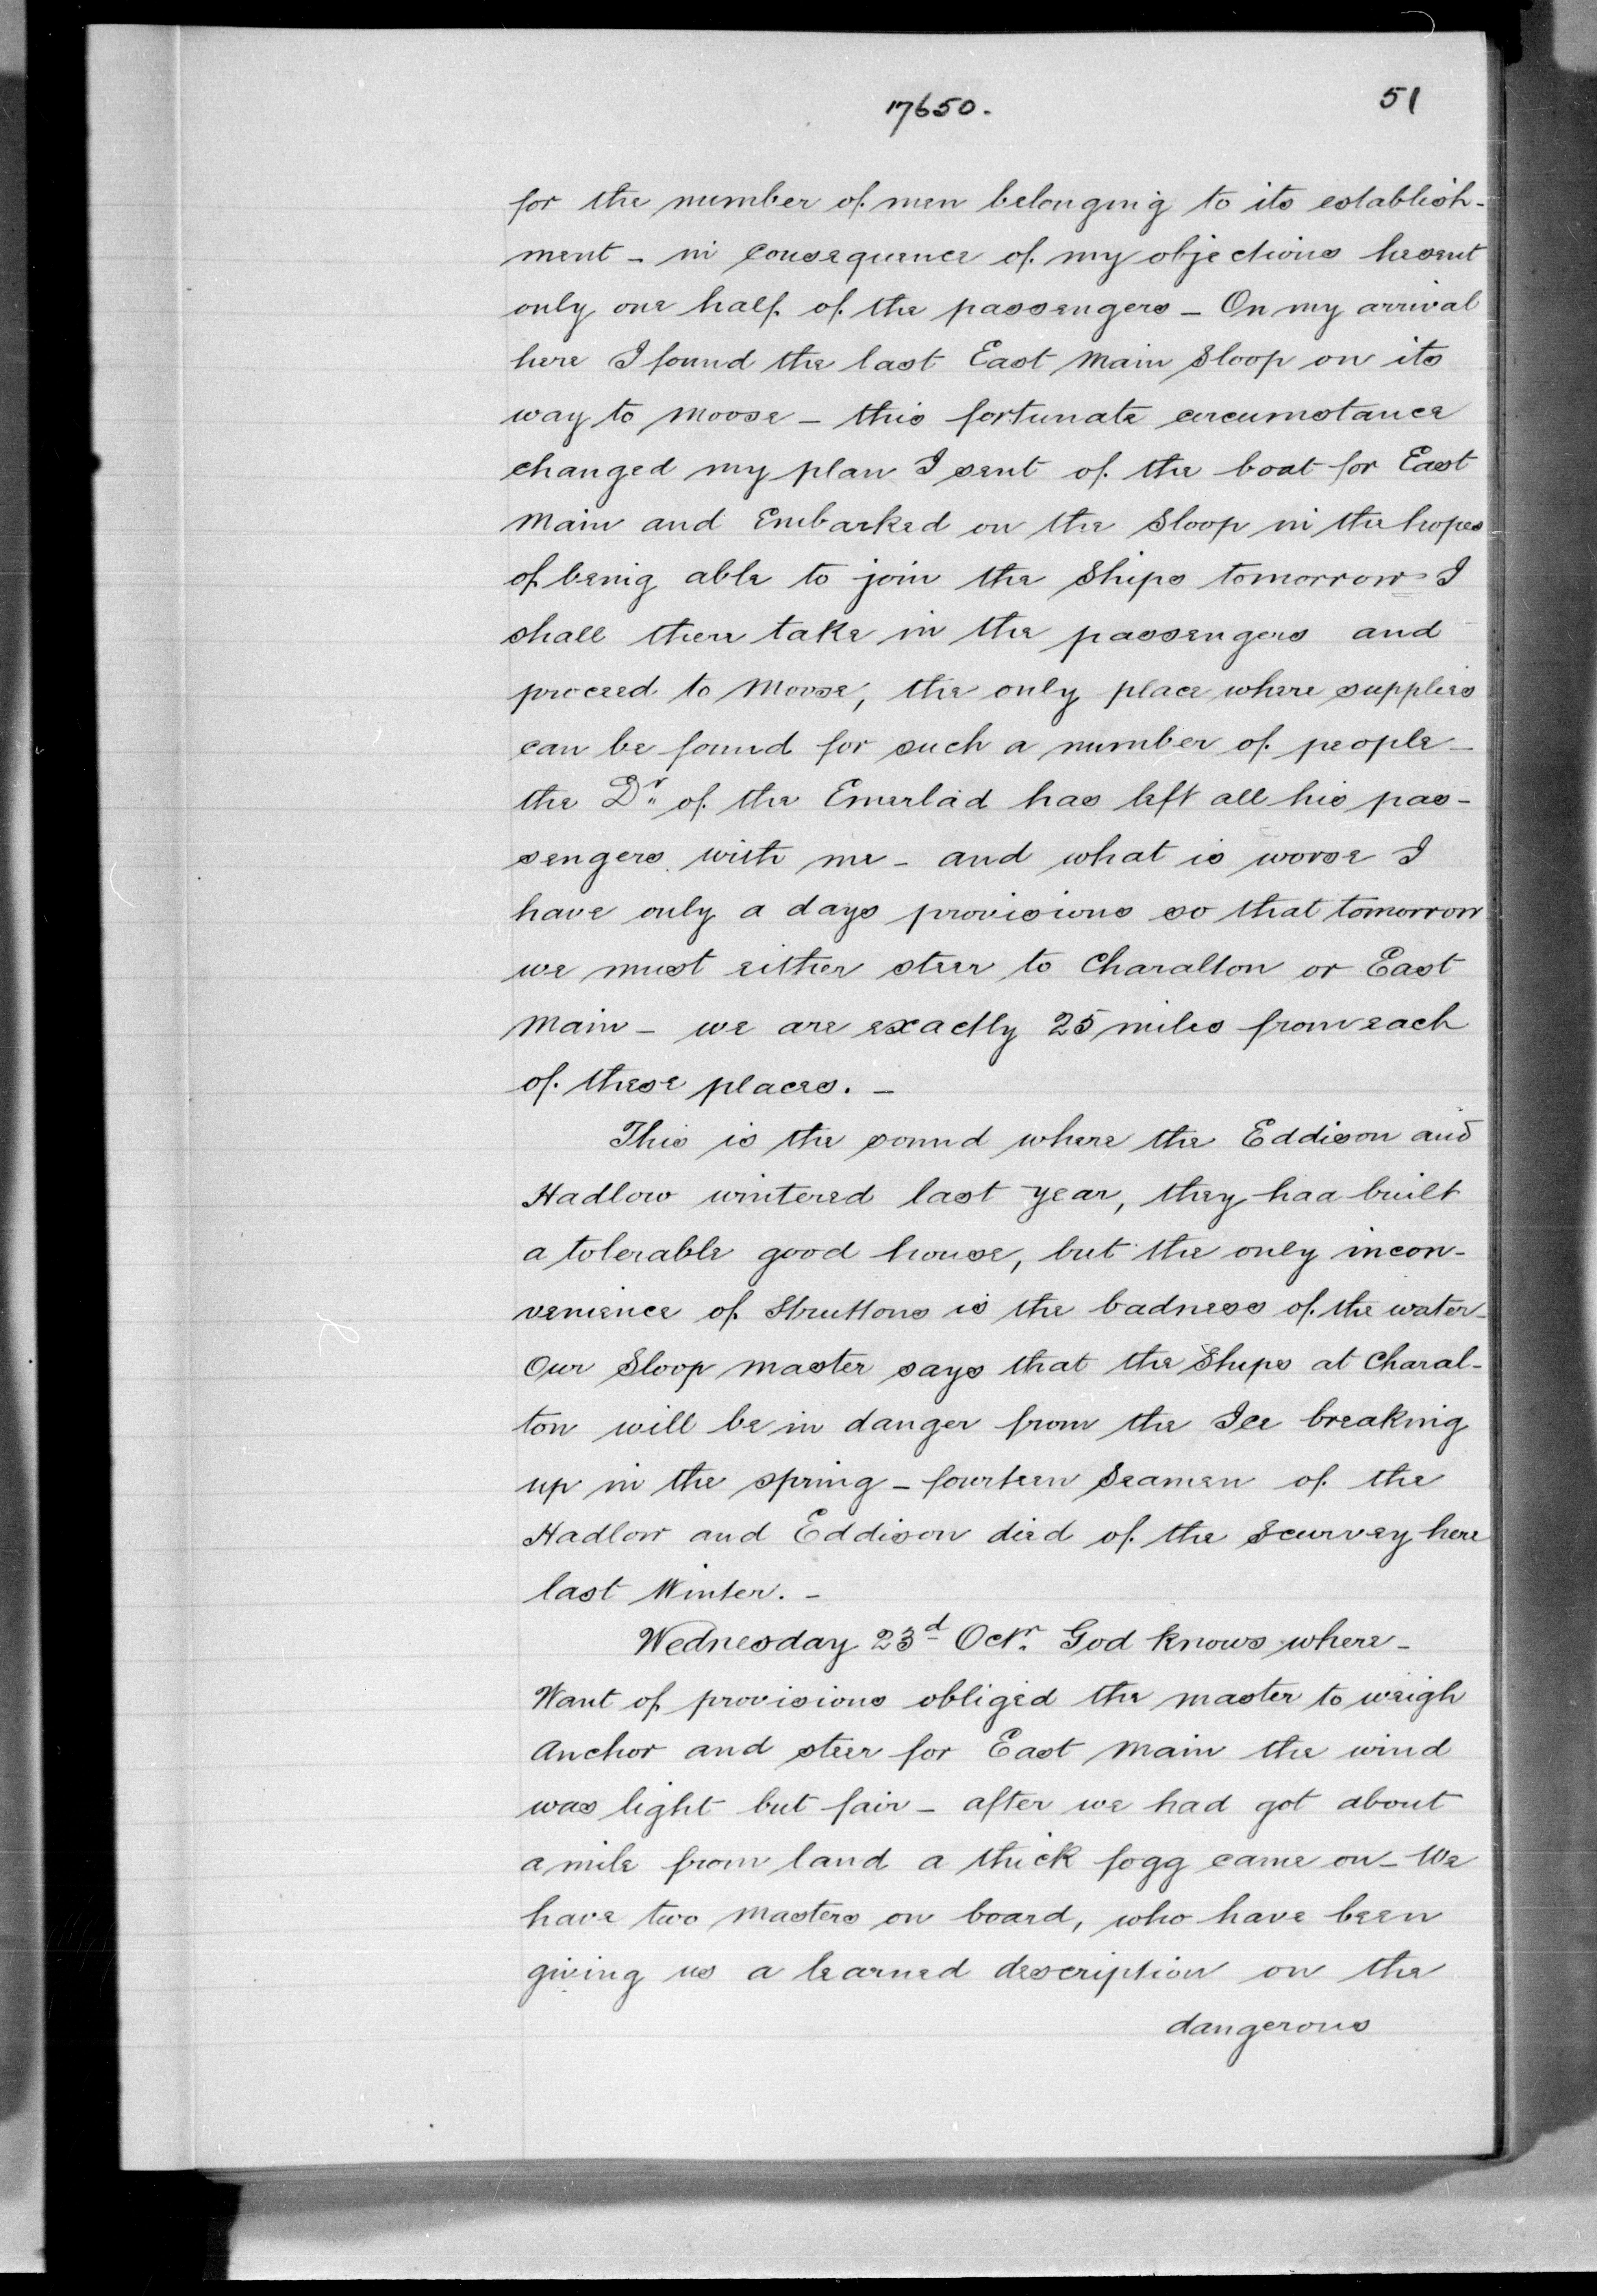 17650.
51
for the number of men belonging to its establish-
ment - in consequence of my objections he sent
only one half of the passengers - On my arrival
here I found the last East Main Sloop on its
way to Moose - this fortunate circumstance
changed my plan I sent of the boat for East
Main and Embarked on the Sloop in the hopes
of being able to join the Ships tomorrow - I
shall there take in the passengers and
proceed to Moose, the only place where supplies
can be found for such a number of people -
the Dr. of the Emerlad has left all his pas-
sengers with me - and what is worse I
have only a days provisions so that tomorrow
we must either steer to Charalton or East
Main - we are exactly 25 miles from each
of these places. -
This is the sound where the Eddison and
Hadlow wintered last year, they had built
a tolerable good house, but the only incon-
venience of Struttons is the badness of the water -
Our Sloop master says that the Ships at Charal-
ton will be in danger from the Ice breaking
up in the spring - fourteen Seamen of the
Hadlow and Eddison died of the Scurvey here
last Winter. -
Wednesday 23d Octr. God knows where -
Want of provisions obliged the master to weigh
Anchor and steer for East Main the wind
was light but fair - after we had got about
a mile from land a thick fogg came on - We
have two Masters on board, who have been
giving us a learned description on the
dangerous